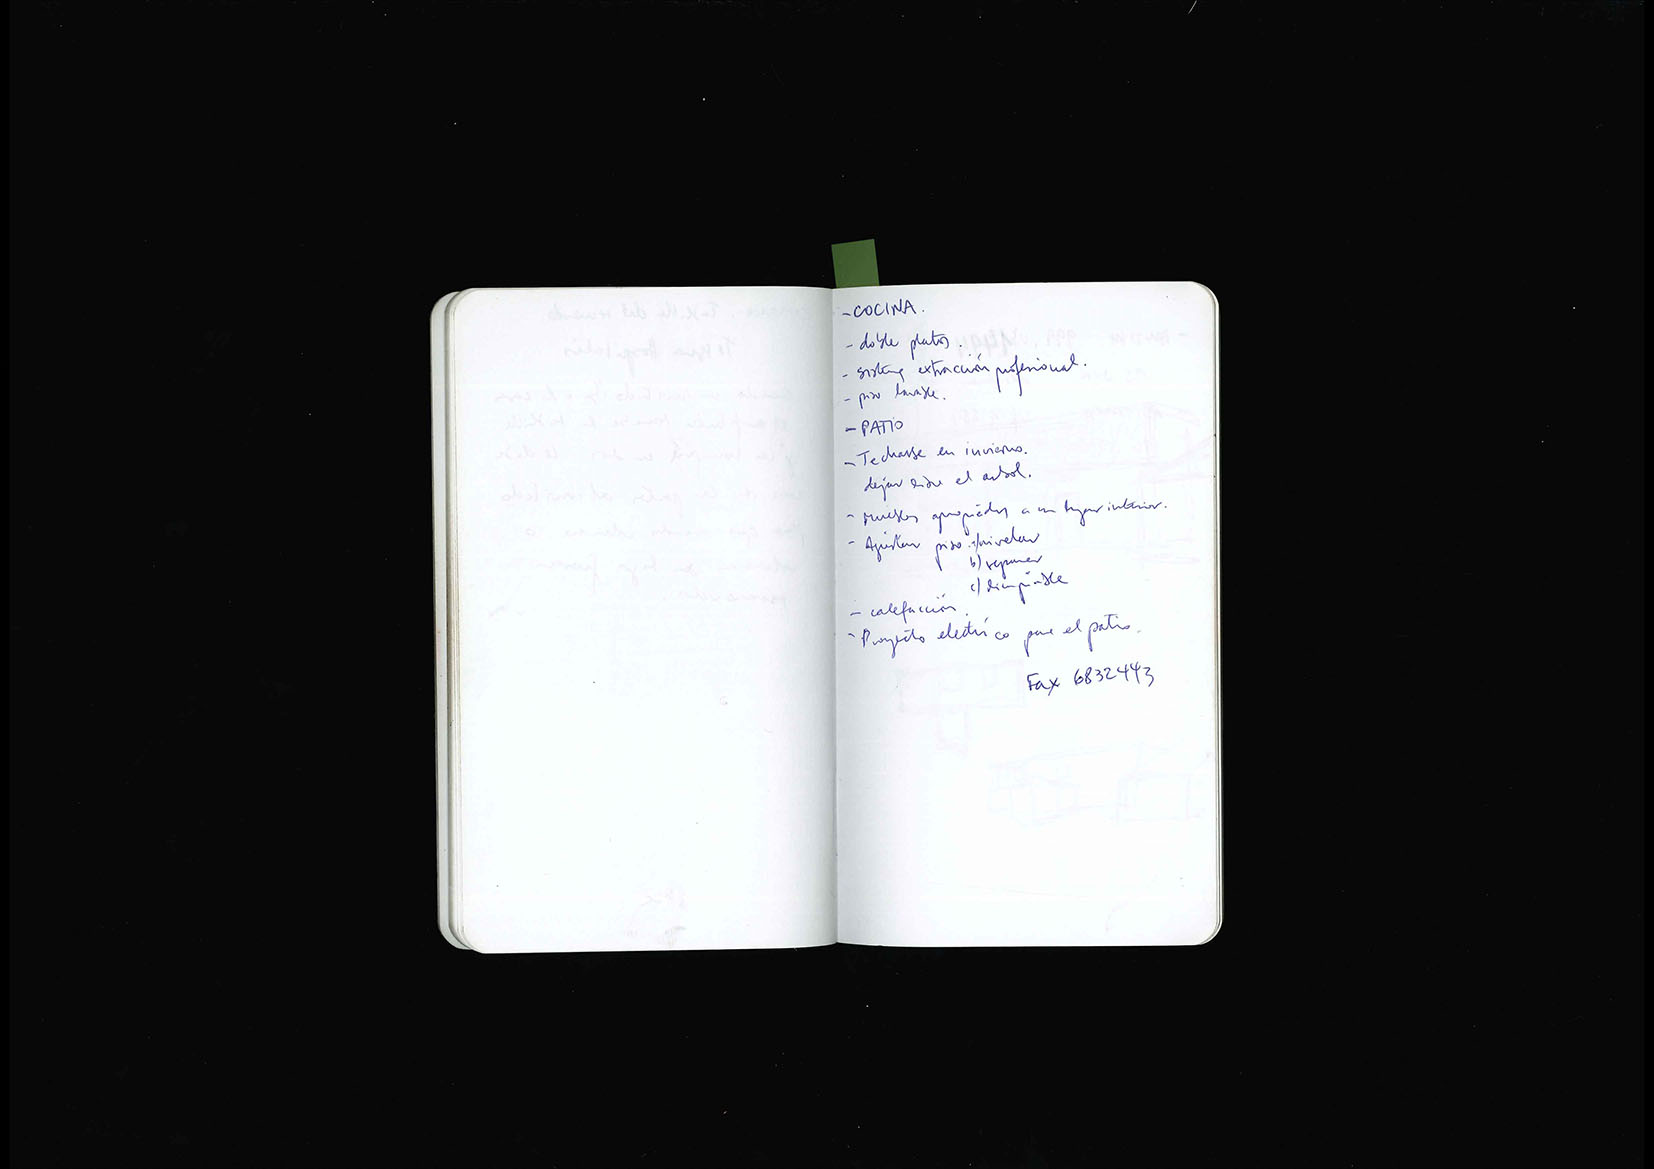 - COCINA.
- doble platos.
- sistema extracción profesional.
- piso lavable.
- PATIO
- Techarse en invierno.
dejar libre el arbol.
- muebles apropiados a un lugar interior.
- Ajustar piso. a) nivelar
b) reponer
c)
- calefacción.
- Proyecto eléctrico para el patio.
Fax 6832443